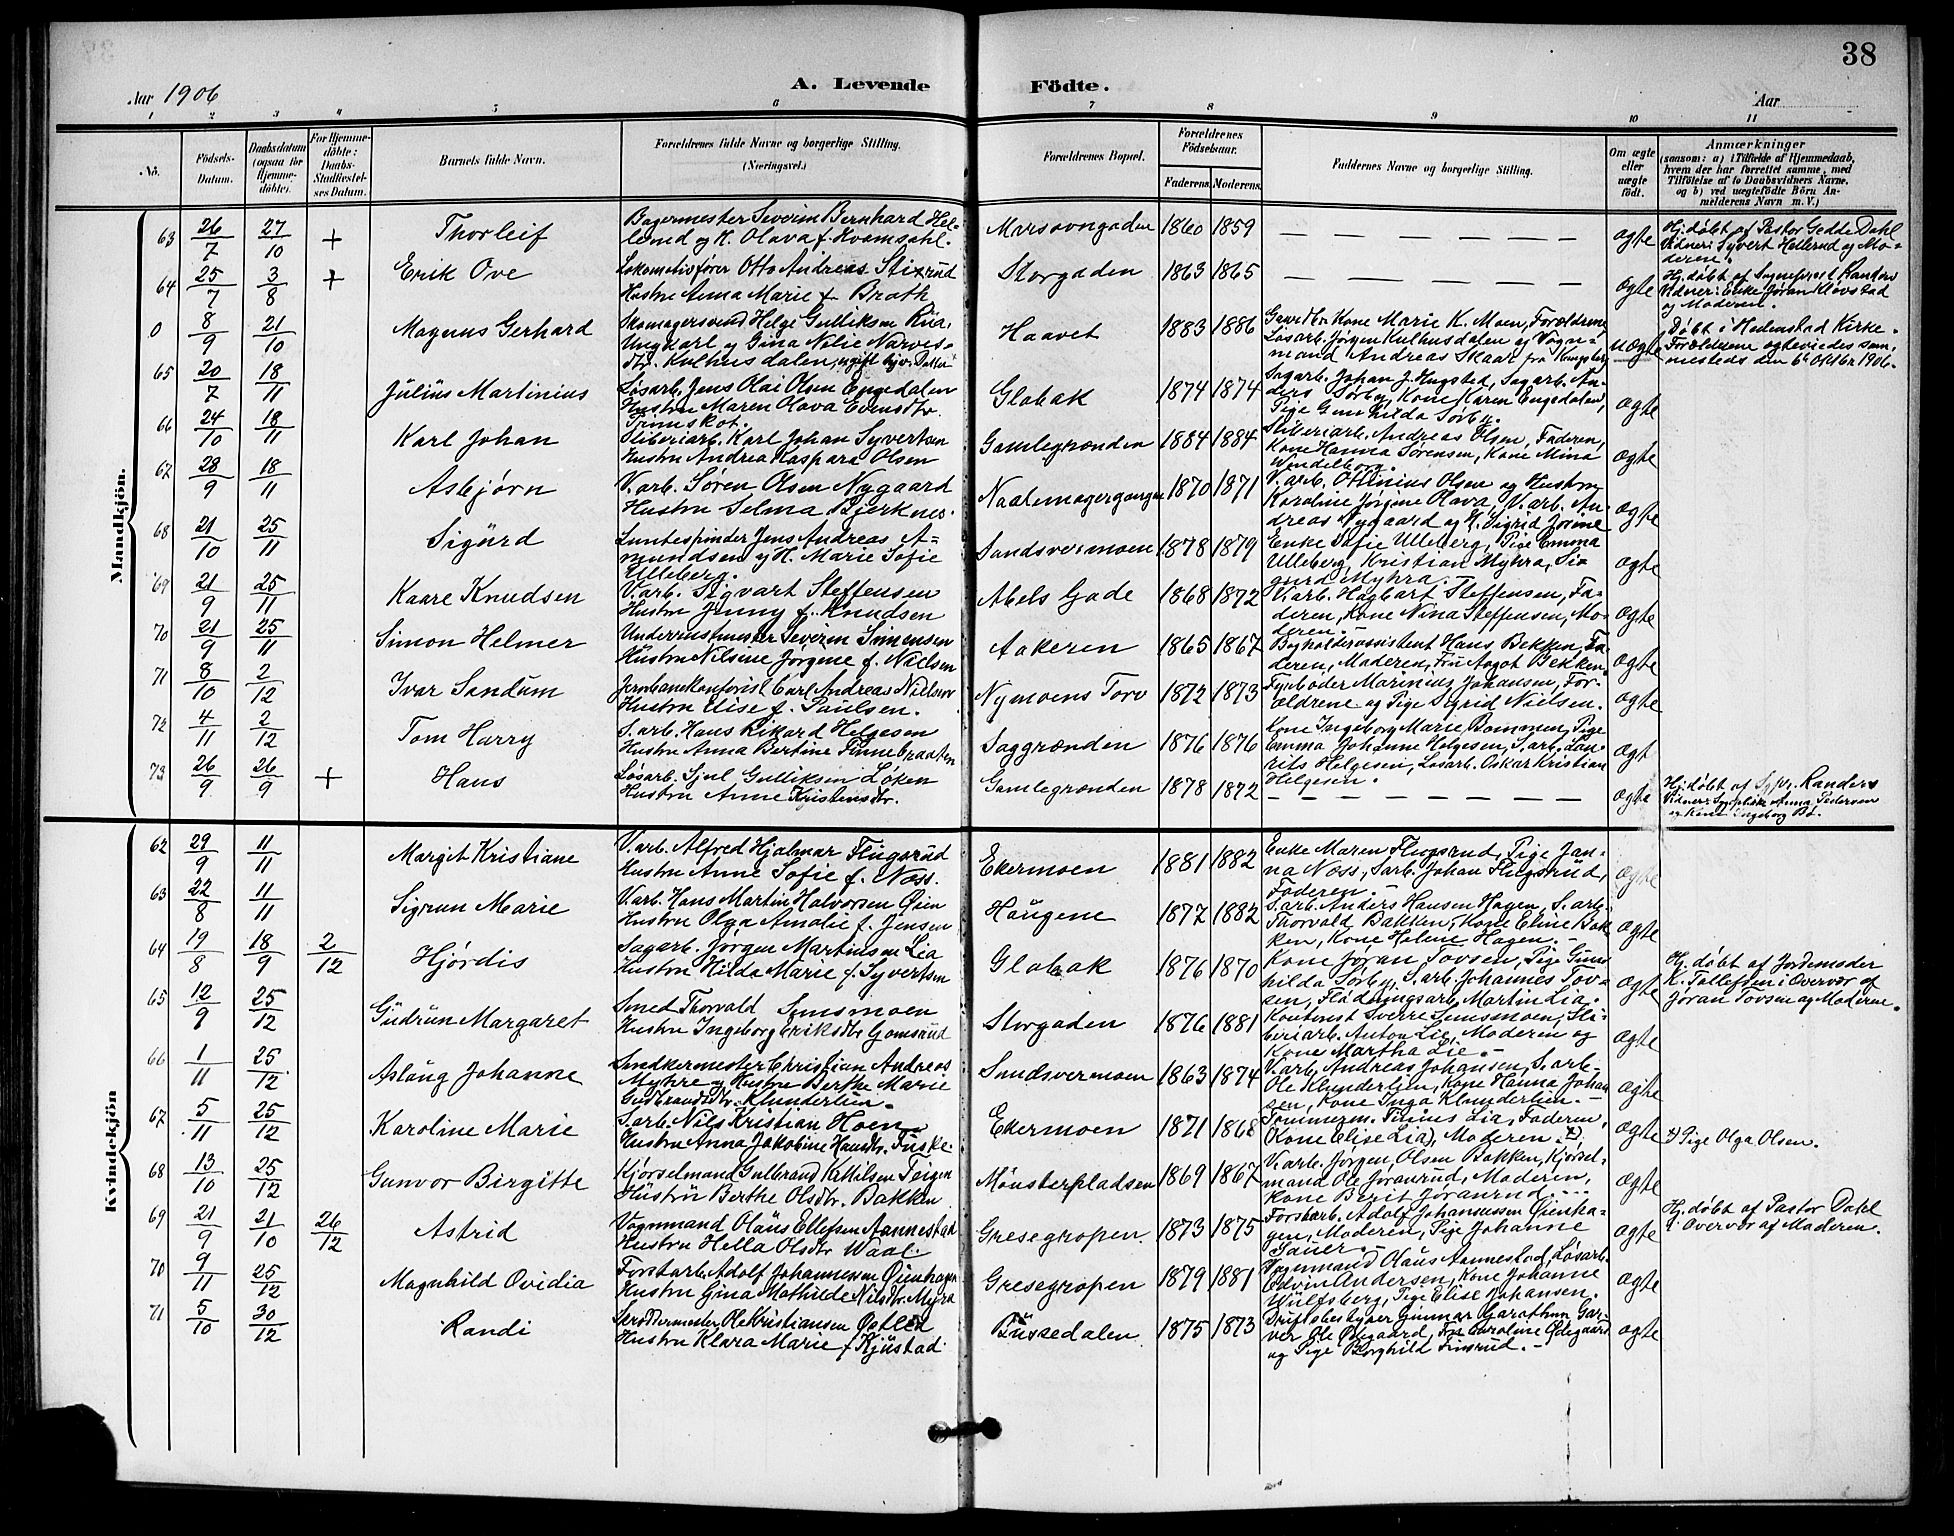 38
Aar 1906
A. Levende Födte.
Aar
1 2 3 4 5 6 7 8 9 10 11
No. Födsels-Datum. Daabsdatum (ogsaa for Hjemmedöbte). For Hjemmedöbte: Daabs-Stadfæstelses Datum. Barnets fulde Navn. Forældrenes fulde Navne og borgerlige Stilling. (Næringsvei.) Forældrenes Bopæl. Forældrenes Födselsaar. Faderens. Moderens. Faddernes Navne og borgerlige Stilling. Om ægte eller uægte födt. Anmærkninger (saasom: a) i Tilfælde af Hjemmedaab, hvem der har forrettet samme, med Tilföielse af to Daabsvidners Navne, og b) ved uægtefödte Börn Anmelderens Navn m. V.)
Mandkjön.
63 26/7 27/10 + Thorleif Bagermester Severin Bernhard Hellerud og H. Olava f. Hvamsahl. 1860 1859 — — — — — — ægte Hj. döbt af Pastor Gedde Dahl Vidner: Syvert Hellerud og Moderen.
64 25/7 3/8 + Erik Ove Lokomotivfører Otto Andreas Stixrud Hustru Anna Marie f. Broth Storgaden 1863 1865 — — — — — — ægte Hj. döbt af Sogneprest Randers Vidner: Enke Jøran Klovstad og Moderen.
0 8/9 21/10 Magnus Gerhard Skomagersvend Helge Gulliksen Rua, Ungkarl og Gina Nelie Narvesdtr. Kulhusdalen, ugift Haavet 1883 1886 Kone Marie K. Moen, Forældrene Løsarb. Jørgen Kulhusdalen og Vognmand Andreas Skaar fra Kongsberg uægte Döbt i Hedenstad Kirke. Forældrene ægteviedes sammesteds den 6te Oktbr 1906.
65 20/7 18/11 Julius Martinius Løsarb. Jens Olai Olsen Engedalen Hustru Maren Olava Evensdtr. Finnskot. Glabak 1874 1874 Sagarb. Johan J. Hugsted, Sagarb. Anders Sørby, Kone Karen Engedalen, Pige Gunhilda Sørby. ægte
66 24/10 18/11 Karl Johan Sliberiarb. Karl Johan Syvertsen Hustru Andrea Kaspara Olsen Gamlegrænden 1884 1884 Sliberiarb. Andreas Olsen, Faderen, Kone Hanna Sørensen, Kone Mina Wendelborg. ægte
67 28/9 18/11 Asbjørn V. arb. Søren Olsen Nygaard Hustru Selma Bjerknes. Naalemagergangen 1870 1871 V. arb. Ottinius Olsen og Hustru Karoline Jørgine Olava, V. arb. Andreas Nygaard og H. Sigrid Jorine ægte
68 21/10 25/11 Sigurd Buntespinder Jens Andreas Amundsen og H. Marie Sofie Ulleberg. Sandsvermoen 1878 1879 Enke Sofie Ulleberg, Pige Emma Ulleberg, Kristian Myhra, Sigurd Myhra. ægte
69 21/9 25/11 Kaare Knudsen V. arb. Sigvart Steffensen Hustru Jenny f. Knudsen Abels Gade 1868 1872 V. arb. Hagbart Steffensen, Faderen, Kone Nina Steffensen, Moderen. ægte
70 21/9 25/11 Simon Helmer Severin Simensen Hustru Nilsine Jørgine f. Nielsen Aakeren 1865 1867 Bogholderassistent Hans Bekken, Faderen, Moderen, Fru Aagot Bekken. ægte
71 8/10 2/12 Ivar Sandum Jernbanekontorist Carl Andreas Nielsen Hustru Elise f. Paulsen. Nymoens Torv 1872 1873 Fyrbøder Marinius Johansen, Forældrene og Pige Sigrid Nielsen. ægte
72 4/11 2/12 Tom Harry S. arb. Hans Rikard Helgesen Hustru Anna Bertine Finnebraaten Saggrænden 1876 1876 Kone Ingeborg Marie Bommen, Pige Emma Johanne Helgesen, S. arb. Laurits Helgesen, Løsarb. Oskar Kristian Helgesen. ægt
73 26/9 26/9 + Hans Løsarb. Sjul Gulliksen Løken Hustru Anne Kristensdtr. Gamlegrænden 1878 1872 — — — — — — ægte Hj. döbt af Sgpr. Randers Vidner: Anna Pedersen og Kone Ingeborg Bö.
Kvindekjön
62 29/9 11/11 Margit Kristiane V. arb. Alfred Hjalmar Flugsrud Hustru Anne Sofie f. Næss. Ekermoen 1881 1882 Enke Maren Flugsrud, Pige Janna Næss, S. arb. Johan Flugsrud, Faderen. ægte
63 22/8 11/11 Sigrun Marie V. arb. Hans Martin Halvorsen Øien Hustru Olga Amalie f. Jensen Haugene 1877 1882 S. arb. Anders Hansen Hagen, S. arb. Thorvald Bakken, Kone Eline Bakken, Kone Helene Hagen. ægte
64 19/8 18/9 2/12 Hjørdis Sagarb. Jørgen Martinsen Lia Hustru Hilda Marie f. Syvertsen Glabak 1876 1870 Kone Jøran Tovsen, Pige Gunhilda Sørby, S. arb. Johannes Tovsen, Flødningsarb. Martin Lia. ægte Hj. döbt af Jordemoder K. Tollefsen i Overvær af Jøran Tovsen og Moderen.
65 12/9 25/12 Gudrun Margaret Smed Thorvald Sunsmoen Hustru Ingeborg Eriksdtr. Gomsrud Storgaden 1876 1881 Kontorist Sverre Sunsmoen, Sliberiarb. Anton Lie, Moderen og Kone Martha Lie. ægte
66 1/11 25/12 Aslaug Johanne Snedkermester Christian Andreas Myhre og Hustru Berthe Marie Gudbrandsdtr. Klunderlien. Sandsvermoen 1863 1874 V. arb. Andreas Johansen, S. arb. Ole Klunderlien, Kone Hanna Johansen, Kone Inga Klunderlien. ægte
67 5/11 25/12 Karoline Marie S. arb. Nils Kristian Hoen Hustru Anna Jakobine Hansdtr. Fuske Ekermoen 1871 1868 Tinius Lia, Faderen, (Kone Elise Lia), Moderen. x) ægte x) Pige Olga Olsen.
68 13/10 25/12 Gunvor Birgitte Kjørselmand Gulbrand K. Nilsen Teigen Hustru Berthe Olsdtr. Bakken Mønsterpladsen 1869 1867 V. arb. Jørgen Olsen Bakken, Kjørselmand Ole Jøranrud, Moderen, Kone Berit Jøranrud. ægte
69 21/9 21/10 26/12 Astrid Vognmand Olaus Ellefsen Aannestad Hustru Hella Olsdtr. Waal. Gresegropen. 1873 1875 Forstarb. Adolf Johannessen Øienhagen, Moderen, Pige Johanne Sauer. ægte Hj. döbt af Pastor Dahl i Overvær af Moderen.
70 9/11 25/12 Magnhild Ovidia Forstarb. Adolf Johannessen Øienhagen Hustru Gina Mathilde Nilsdtr. Myra Gresegropen 1879 1881 Vognmand Olaus Aannestad, Løsarb. Edvin Andersen, Kone Johanne Wulfsberg, Pige Elise Johansen. ægte
71 5/10 30/12 Randi Skræddermester Ole Kristiansen Østlid Hustru Klara Marie f. Kjustad. Bussedalen 1875 1873 Driftsbestyrer Gunnar Garathun, Garver Ole Ødegaard, Fru Caroline Ødegaard og Pige Borghild Finsrud. ægte